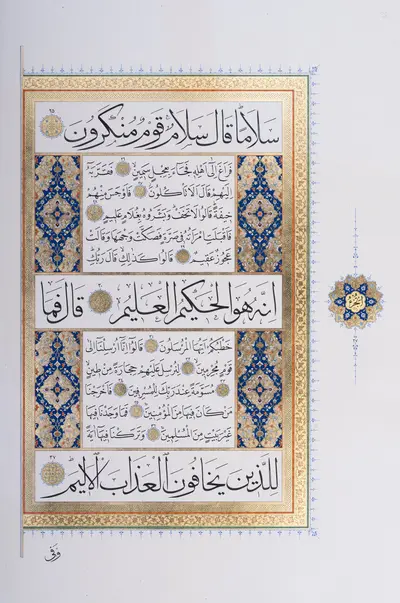 سَلَامًا قَالَ سَلَامٌ قَوْمٌ مُنْكَرُونَ ۲۵
فَرَاغَ اِلٰى اَهْلِهٖ فَجَاءَ بِعِجْلٍ سَمِينٍ ۲۶ فَقَرَّبَهُ
اِلَيْهِمْ قَالَ اَلَا تَأْكُلُونَ ۲۷ فَاَوْجَسَ مِنْهُمْ
خِيفَةً قَالُوا لَا تَخَفْ وَبَشَّرُوهُ بِغُلَامٍ عَلِيمٍ ۲۸
فَاَقْبَلَتِ امْرَاَتُهُ فِي صَرَّةٍ فَصَكَّتْ وَجْهَهَا وَقَالَتْ
عَجُوزٌ عَقِيمٌ ۲۹ قَالُوا كَذٰلِكِ قَالَ رَبُّكِ
اِنَّهُ هُوَ الْحَكِيمُ الْعَلِيمُ ۳۰ قَالَ فَمَا
خَطْبُكُمْ اَيُّهَا الْمُرْسَلُونَ ۳۱ قَالُوا اِنَّا اُرْسِلْنَا اِلٰى
قَوْمٍ مُجْرِمِينَ ۳۲ لِنُرْسِلَ عَلَيْهِمْ حِجَارَةً مِنْ طِينٍ
۳۳ مُسَوَّمَةً عِنْدَ رَبِّكَ لِلْمُسْرِفِينَ ۳۴ فَاَخْرَجْنَا
مَنْ كَانَ فِيهَا مِنَ الْمُؤْمِنِينَ ۳۵ فَمَا وَجَدْنَا فِيهَا
غَيْرَ بَيْتٍ مِنَ الْمُسْلِمِينَ ۳۶ وَتَرَكْنَا فِيهَا اٰيَةً
لِلَّذِينَ يَخَافُونَ الْعَذَابَ الْاَلِيمَ ۳۷
وَفِى